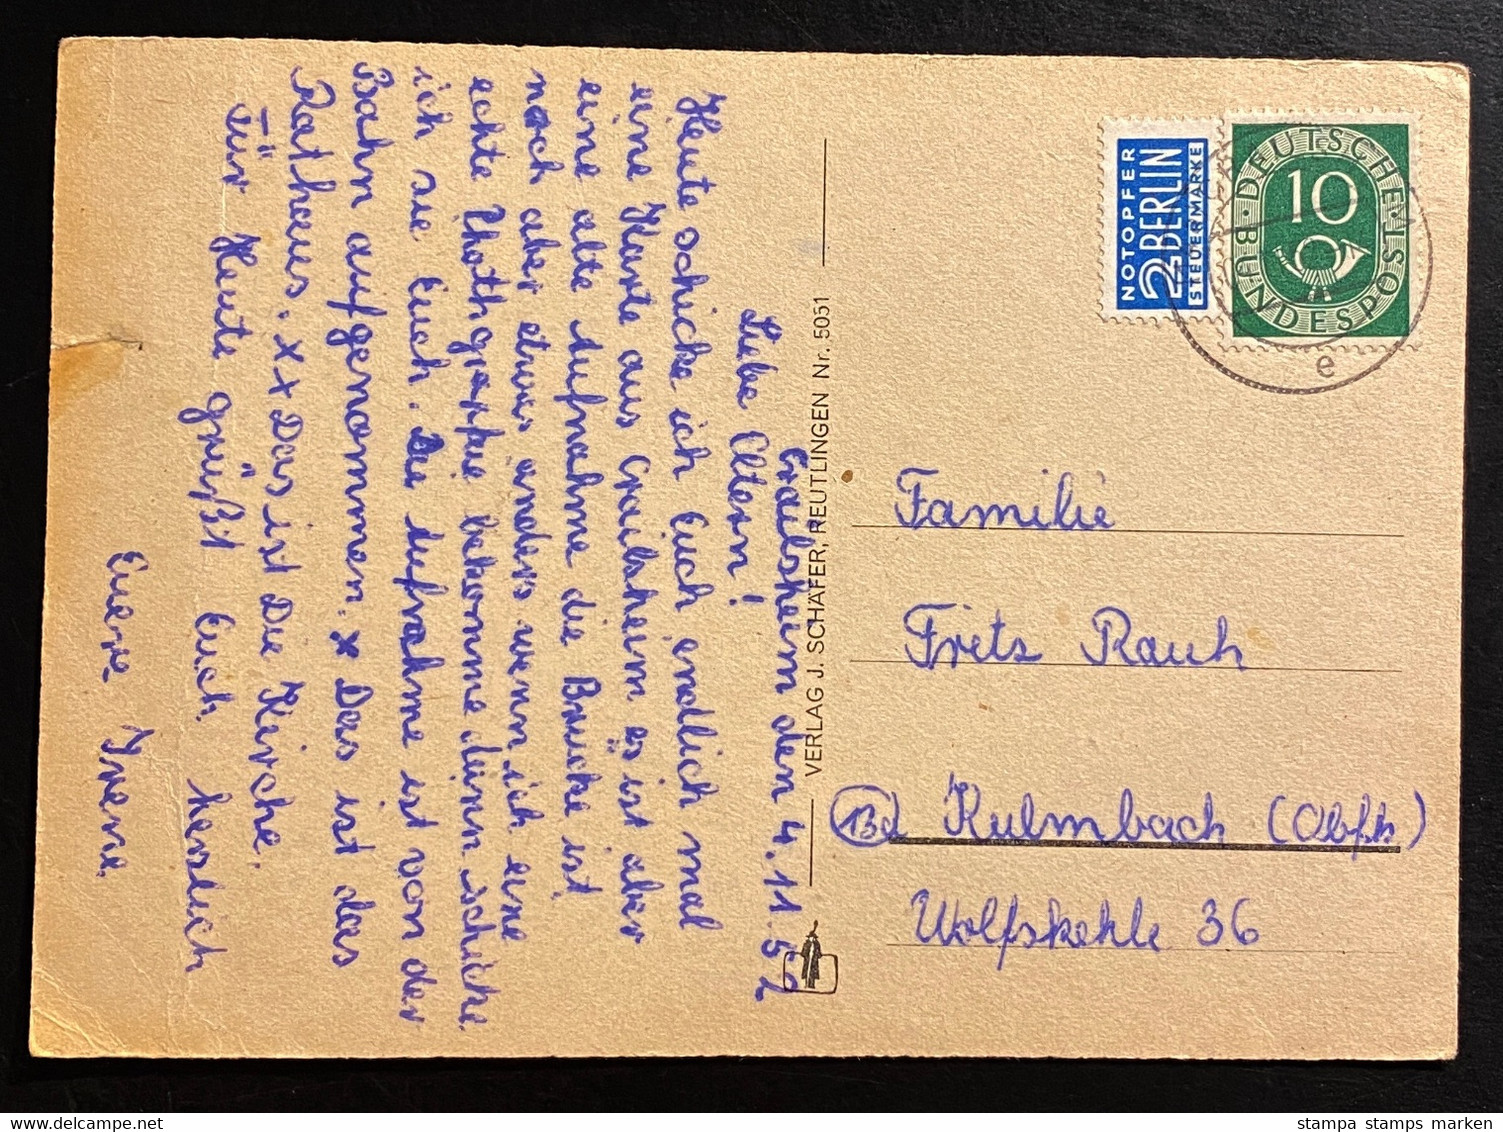 Crailsheim den 4.11.52
Liebe Eltern!
Heute schicke ich Euch endlich mal
eine Karte aus Crailsheim es ist aber
eine alte Aufnahme die Brücke ist
noch aber etwas anders wenn ich eine
echte Phothgraphie bekomme dann schicke
ich sie Euch. Die Aufnahme ist von der
Bahn aufgenommen. x Das ist das
Rathaus. xx Das ist Die Kirche.
Für Heute grüßt Euch herslich
Euere Irene.
VERLAG J. SCHÄFER, REUTLINGEN Nr. 5051
NOTOPFER
2 BERLIN
STEUERMARKE
DEUTSCHE BUNDESPOST
10
e
Familie
Frits Rauh
13a Kulmbach (Obfrk)
Wolfskehle 36
stampa stamps marken